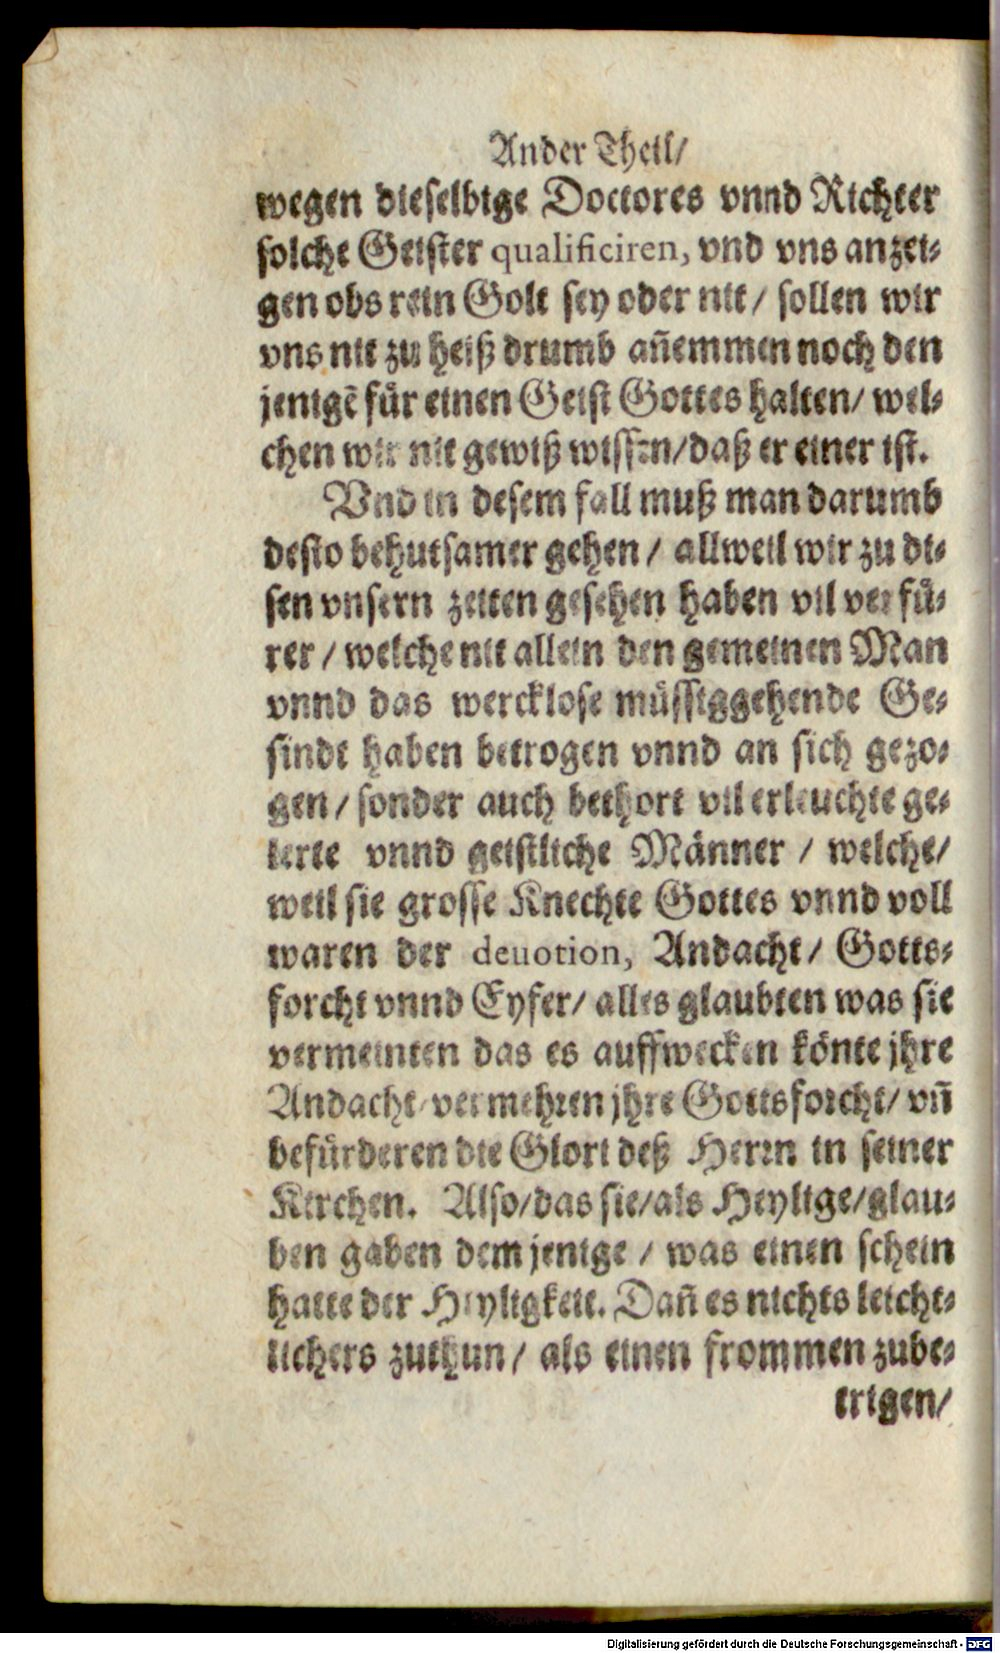 Ander Theil/
wegen dieselbige Doctores vnnd Richter
solche Geister qualificiren, vnd vns anzei-
gen obs rein Golt sey oder nit/ sollen wir
vns nit zu heiß drumb añemmen noch den
jenigẽ fuͤr einen Geist Gottes halten/ wel-
chen wir nit gewiß wissen/daß er einer ist.
Vnd in desem fall muß man darumb
desto behutsamer gehen / allweil wir zu di-
sen vnsern zeiten gesehen haben vil verfuͤ-
rer / welche nit allein den gemeinen Man
vnnd das wercklose muͤssiggehende Ge-
sindt haben betrogen vnnd an sich gezo-
gen / sonder auch bethort vil erleuchte ge-
lerte vnnd geistliche Maͤnner / welche/
weil sie grosse Knechte Gottes vnnd voll
waren der deuotion, Andacht/ Gotts-
forcht vnnd Eyfer/ alles glaubten was sie
vermeinten das es auffwecken koͤnte jhre
Andacht/ vermehren jhre Gottsforcht/ vñ
befuͤrderen die Glori deß Herrn in seiner
Kirchen. Also/das sie/als Heylige/glau-
ben gaben dem jenige / was einen schein
hatte der Heyligkeit. Dañ es nichts leicht-
lichers zuthun/ als einen frommen zube-
trigen/
Digitalisierung gefördert durch die Deutsche Forschungsgemeinschaft - DFG